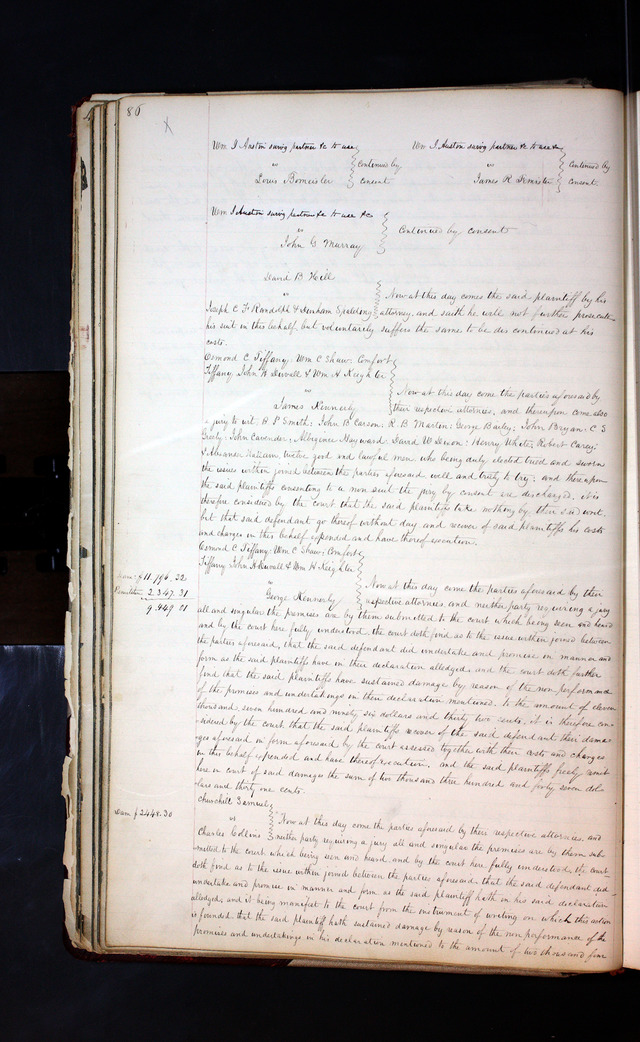 86
X
Wm I Auston surivg partner &c to use
vs
Louis Bomeisler
continued by
consent
Wm I Auston surivg partner &c to use &c
vs
James R. Dimister
continued by
consent
Wm I Auston surivg partner &c to use &c
vs
John G Murray
continued by consent
David B Hill
vs
Joseph C F Randolph & Denham Spalding
Now at this day comes the said plaintiff by his
attorney, and saith he will not further prosecute
his suit in this behalf but voluntarily suffers the same to be discontinued at his
costs.
Osmond C Tiffany, Wm C Shaw, Comfort
Tiffany, John H Duvall & Wm H Keighler
vs
James Kennerly
Now at this day come the parties aforesaid by
their respective attornies, and thereupon came also
a jury to wit, B P Smith, John B Carson, R B Martin, George Bailey, John Bryan, C S
Greely, John Cavender, Allegance Hayward, David W Dixon, Henry White, Robert Carey,
& twelve good and lawful men who being duly elected tried and sworn
the issues within joined between the parties aforesaid well and truly to try; and thereupon
the said plaintiffs consenting to a non suit the jury by consent are discharged, it is
therefore considered by the court that the said plaintiffs take nothing by their said writ
but that said defendant go thereof without day and recover of said plaintiffs his costs
and charges in this behalf expended and have thereof execution.
Osmond C Tiffany, Wm C Shaw, Comfort
Tiffany John H Duvall & Wm H Keighler
vs
George Kennerly
Dam: $11,796.32
Remittitur 2,347.31
9,449 01
Now at this day come the parties aforesaid by their
respective attornies, and neither party requiring a jury
all and singular the premises are by them submitted to the court which being seen and heard
and by the court here fully understood, the court doth find as to the issue within joined between
the parties aforesaid, that the said defendant did undertake and promise in manner and
form as the said plaintiffs have in their declaration alledged, and the court doth further
find that the said plaintiffs have sustained damage by reason of the non performance
of the promises and undertakings in their declaration mentioned, to the amount of eleven
thousand, seven hundred and ninety six dollars and thirty two cents. it is therefore con-
sidered by the court that the said plaintiffs recover of the said defendant their dama-
ges aforesaid in form aforesaid by the court assessed together with their costs and charges
in this behalf expended and have thereof execution. and the said plaintiffs freely remit
here in court of said damages the sum of two thousand three hundred and forty seven dol-
lars and thirty one cents.
Churchill Samuel
vs
Charles Collins
Dam $2448.30
Now at this day come the parties aforesaid by their respective attornies. and
neither party requiring a jury all and singular the premises are by them sub-
mitted to the court, which being seen and heard, and by the court here fully understood, the court
doth find as to the issue within joined between the parties aforesaid, that the said defendant did
undertake and promise in manner and form as the said plaintiff hath in his said declaration
alledged, and it being manifest to the court from the instrument of writing on which this action
is founded that the said plaintiff hath sustained damage by reason of the non performance of the
promises and undertakings in his declaration mentioned to the amount of two thousand four